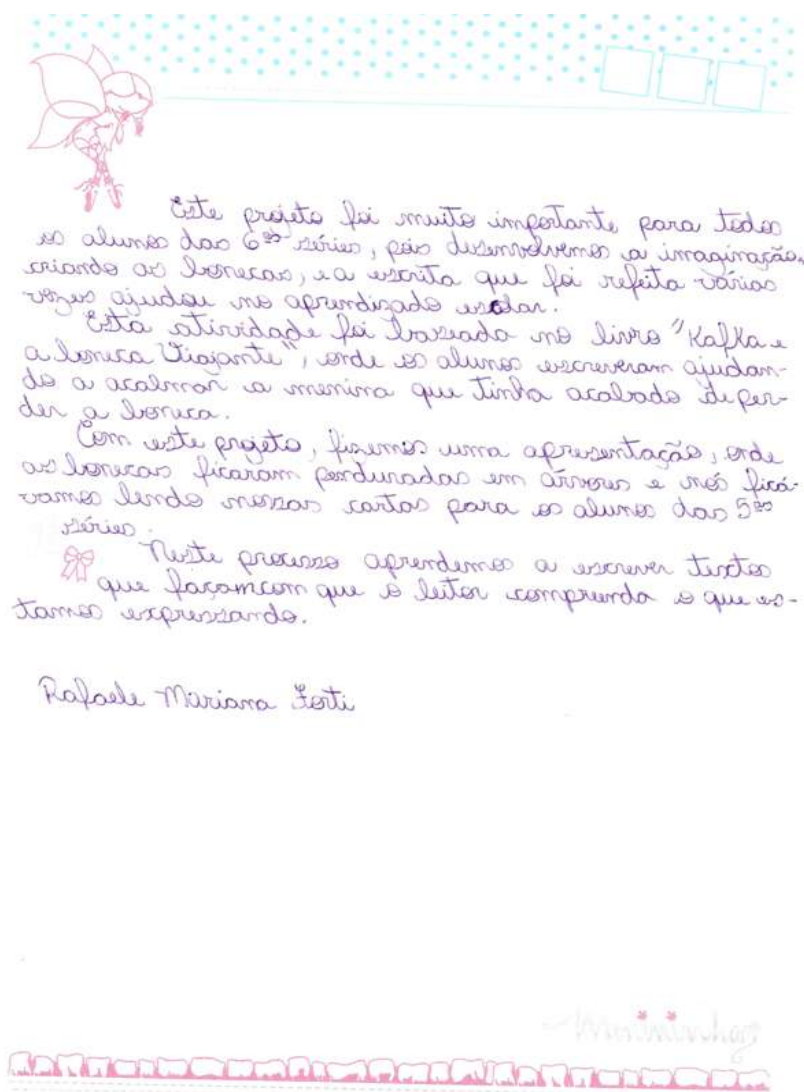 Este projeto foi muito importante para todos
os alunos das 6as séries, pois desenvolvemos a imaginação,
criando as bonecas, e a escrita que foi refeita várias
vezes ajudou no aprendizado escolar.
Esta atividade foi baseada no livro "Kafka e
a boneca Viajante", onde os alunos escreveram ajudan-
do a acalmar a menina que tinha acabado de per-
der a boneca.
Com este projeto, fizemos uma apresentação, onde
as bonecas ficaram penduradas em árvores e nós ficá-
vamos lendo nossas cartas para os alunos das 5as
séries.
Neste processo aprendemos a escrever textos
que façam com que o leitor compreenda o que es-
tamos expressando.
Rafaele Mariana Forti
Menininhas